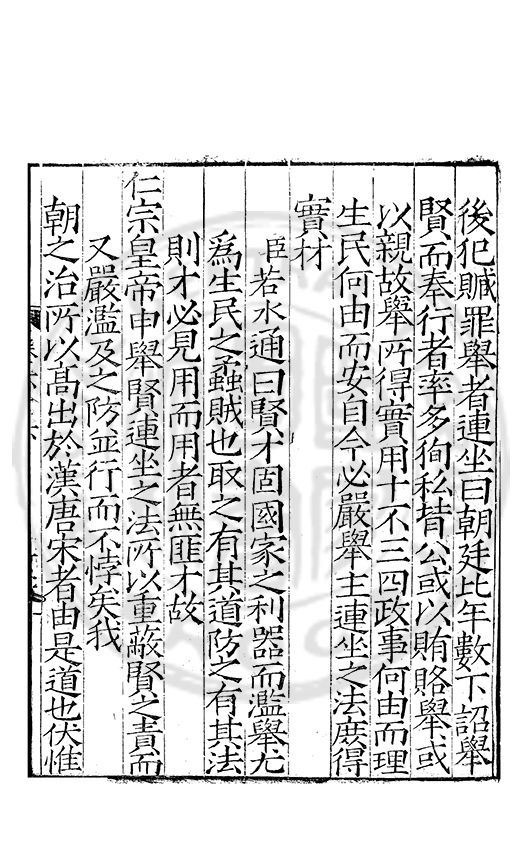 後犯贓罪舉者連坐曰朝廷比年數下詔舉
賢而奉行者率多狥私背公或以賄賂舉或
以親故舉所得實用十不三四政事何由而理
生民何由而安自今必嚴舉主連坐之法庶得
實材
臣若水通曰賢才固國家之利器而濫舉尤
為生民之蟊賊也取之有其道防之有其法
則才必見用而用者無匪才故
仁宗皇帝申舉賢連坐之法所以重蔽賢之責而
又嚴濫及之防並行而不悖矣我
朝之治所以髙出於漢唐宋者由是道也伏惟